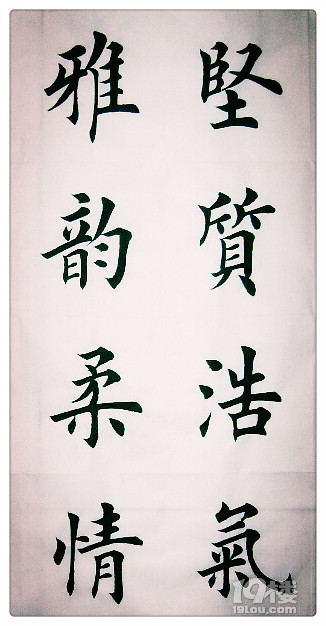 堅質浩氣
雅韵柔情
19楼
19lou.com